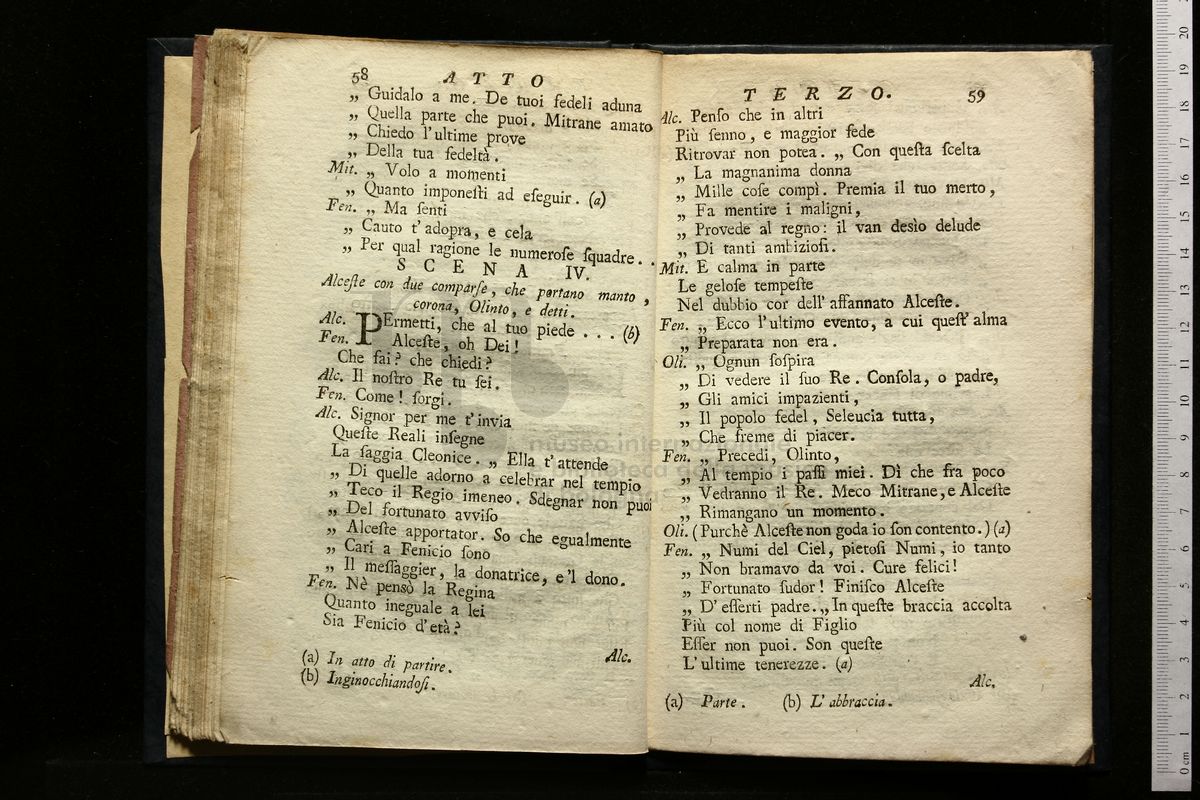 58 ATTO
„ Guidalo a me. De tuoi fedeli aduna
„ Quella parte che puoi. Mitrane amato
„ Chiedo l'ultime prove
„ Della tua fedeltà.
Mit. „ Volo a momenti
„ Quanto imponeſti ad eſeguir. (a)
Fen. „ Ma ſenti
„ Cauto t'adopra, e cela
„ Per qual ragione le numeroſe ſquadre. .
SCENA IV.
Alceſte con due comparſe, che portano manto,
corona, Olinto, e detti.
Alc. PErmetti, che al tuo piede . . . (b)
Fen. Alceſte, oh Dei!
Che fai? che chiedi?
Alc. Il noſtro Re tu ſei.
Fen. Come! ſorgi.
Alc. Signor per me t'invia
Queſte Reali inſegne
La ſaggia Cleonice. „ Ella t'attende
„ Di quelle adorno a celebrar nel tempio
„ Teco il Regio imeneo. Sdegnar non puoi
„ Del fortunato avviſo
„ Alceſte apportator. So che egualmente
„ Cari a Fenicio ſono
„ Il meſſaggier, la donatrice, e'l dono.
Fen. Nè pensò la Regina
Quanto ineguale a lei
Sia Fenicio d'età?
Alc.
(a) In atto di partire.
(b) Inginocchiandoſi.
TERZO. 59
Alc. Penſo che in altri
Più ſenno, e maggior fede
Ritrovar non potea. „ Con queſta ſcelta
„ La magnanima donna
„ Mille coſe compì. Premia il tuo merto,
„ Fa mentire i maligni,
„ Provede al regno: il van desìo delude
„ Di tanti ambizioſi.
Mit. E calma in parte
Le geloſe tempeſte
Nel dubbio cor dell'affannato Alceſte.
Fen. „ Ecco l'ultimo evento, a cui queſt'alma
„ Preparata non era.
Oli. „ Ognun ſoſpira
„ Di vedere il ſuo Re. Conſola, o padre,
„ Gli amici impazienti,
„ Il popolo fedel, Seleucia tutta,
„ Che freme di piacer.
Fen. „ Precedi, Olinto,
„ Al tempio i paſſi miei. Dì che fra poco
„ Vedranno il Re. Meco Mitrane, e Alceſte
„ Rimangano un momento.
Oli. (Purchè Alceſte non goda io ſon contento.) (a)
Fen. „ Numi del Ciel, pietoſi Numi, io tanto
„ Non bramavo da voi. Cure felici!
„ Fortunato ſudor! Finiſco Alceſte
„ D'eſſerti padre. „ In queſte braccia accolta
Più col nome di Figlio
Eſſer non puoi. Son queſte
L'ultime tenerezze. (a)
Alc.
(a) Parte. (b) L'abbraccia.